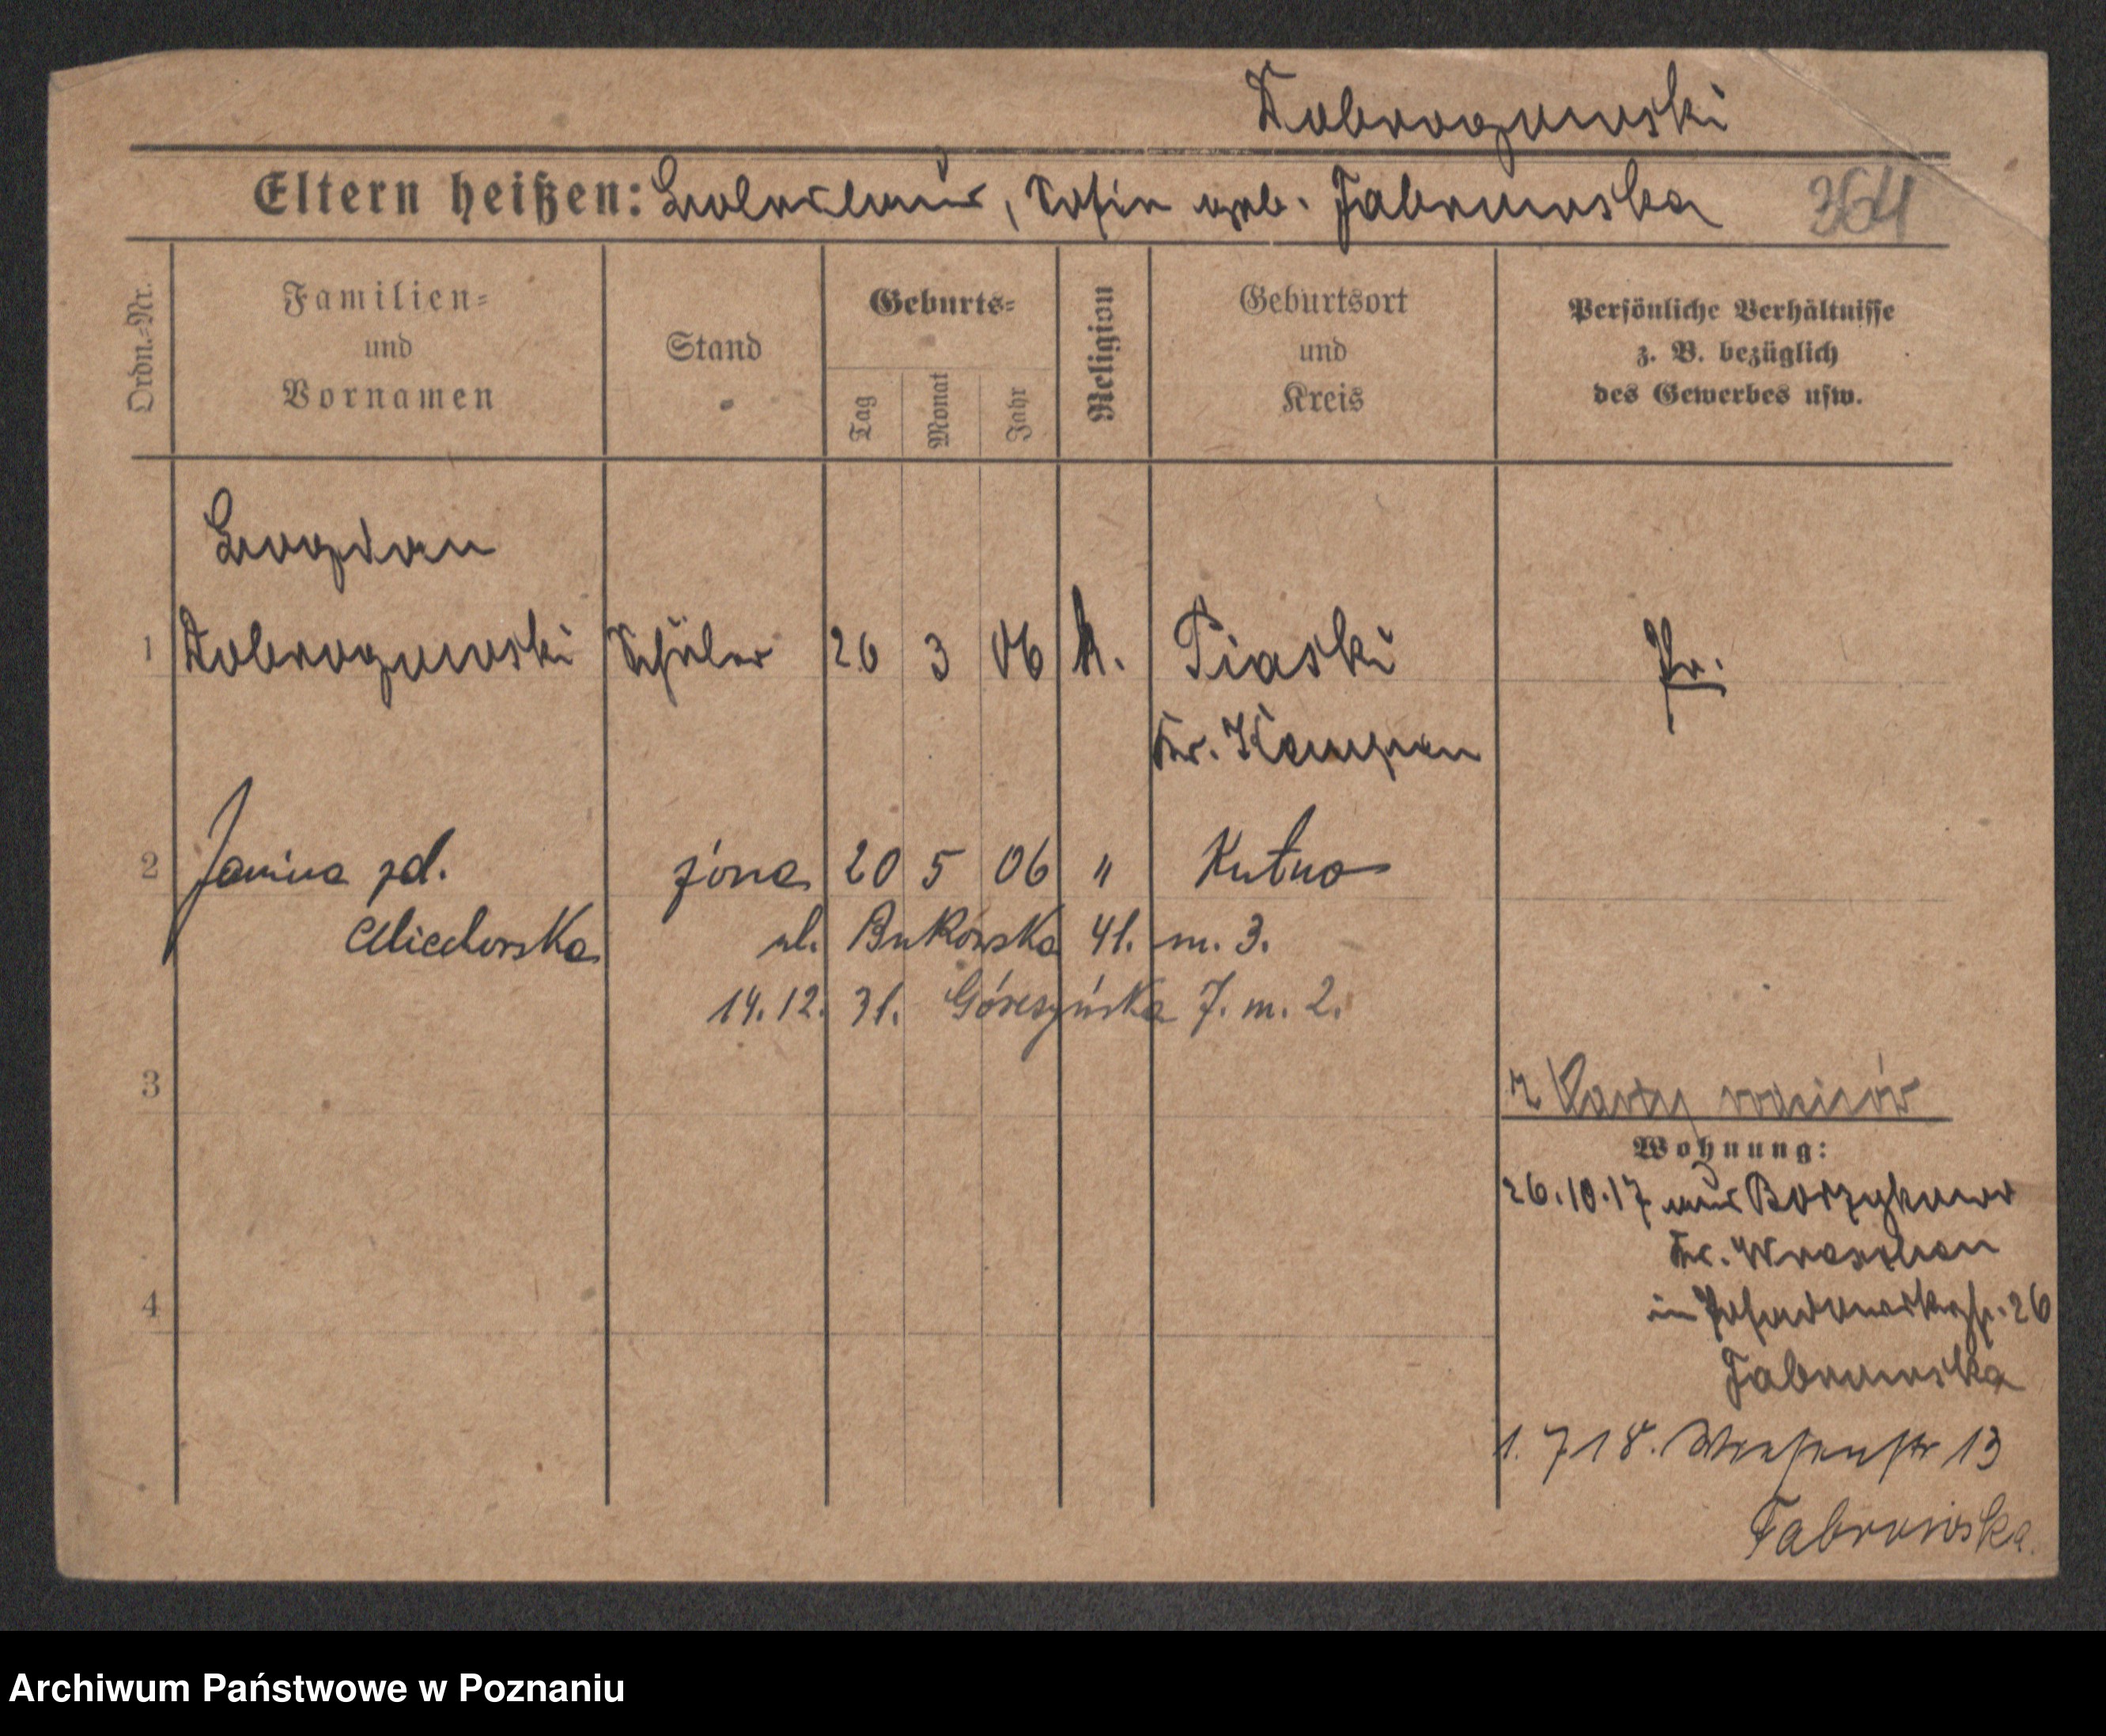 Dobrogowski
Eltern heißen: Boleslaus, Sofie geb. Fabrowska 364
Ordn.=Nr.
Familien=
und
Vornamen
Stand
Geburts=
Tag
Monat
Jahr
Religion
Geburtsort
und
Kreis
Persönliche Verhältnisse
z. B. bezüglich
des Gewerbes usw.
Bogdan
1 Dobrogowski Schüler 26 3 06 k. Piaski Pr.
Kr. Kempen
2 Janina zd. żona 20 5 06 " Kutno
ul. Bukowska 41. m. 3.
14.12. 31. 7. m. 2.
3 z Karty rodziców
Wohnung:
26.10.17 aus Borzykowo
Kr. Wreschen
4 in 26
Fabrowska
1. 7 18. Wiesenstr 13
Fabrowska
Archiwum Państwowe w Poznaniu